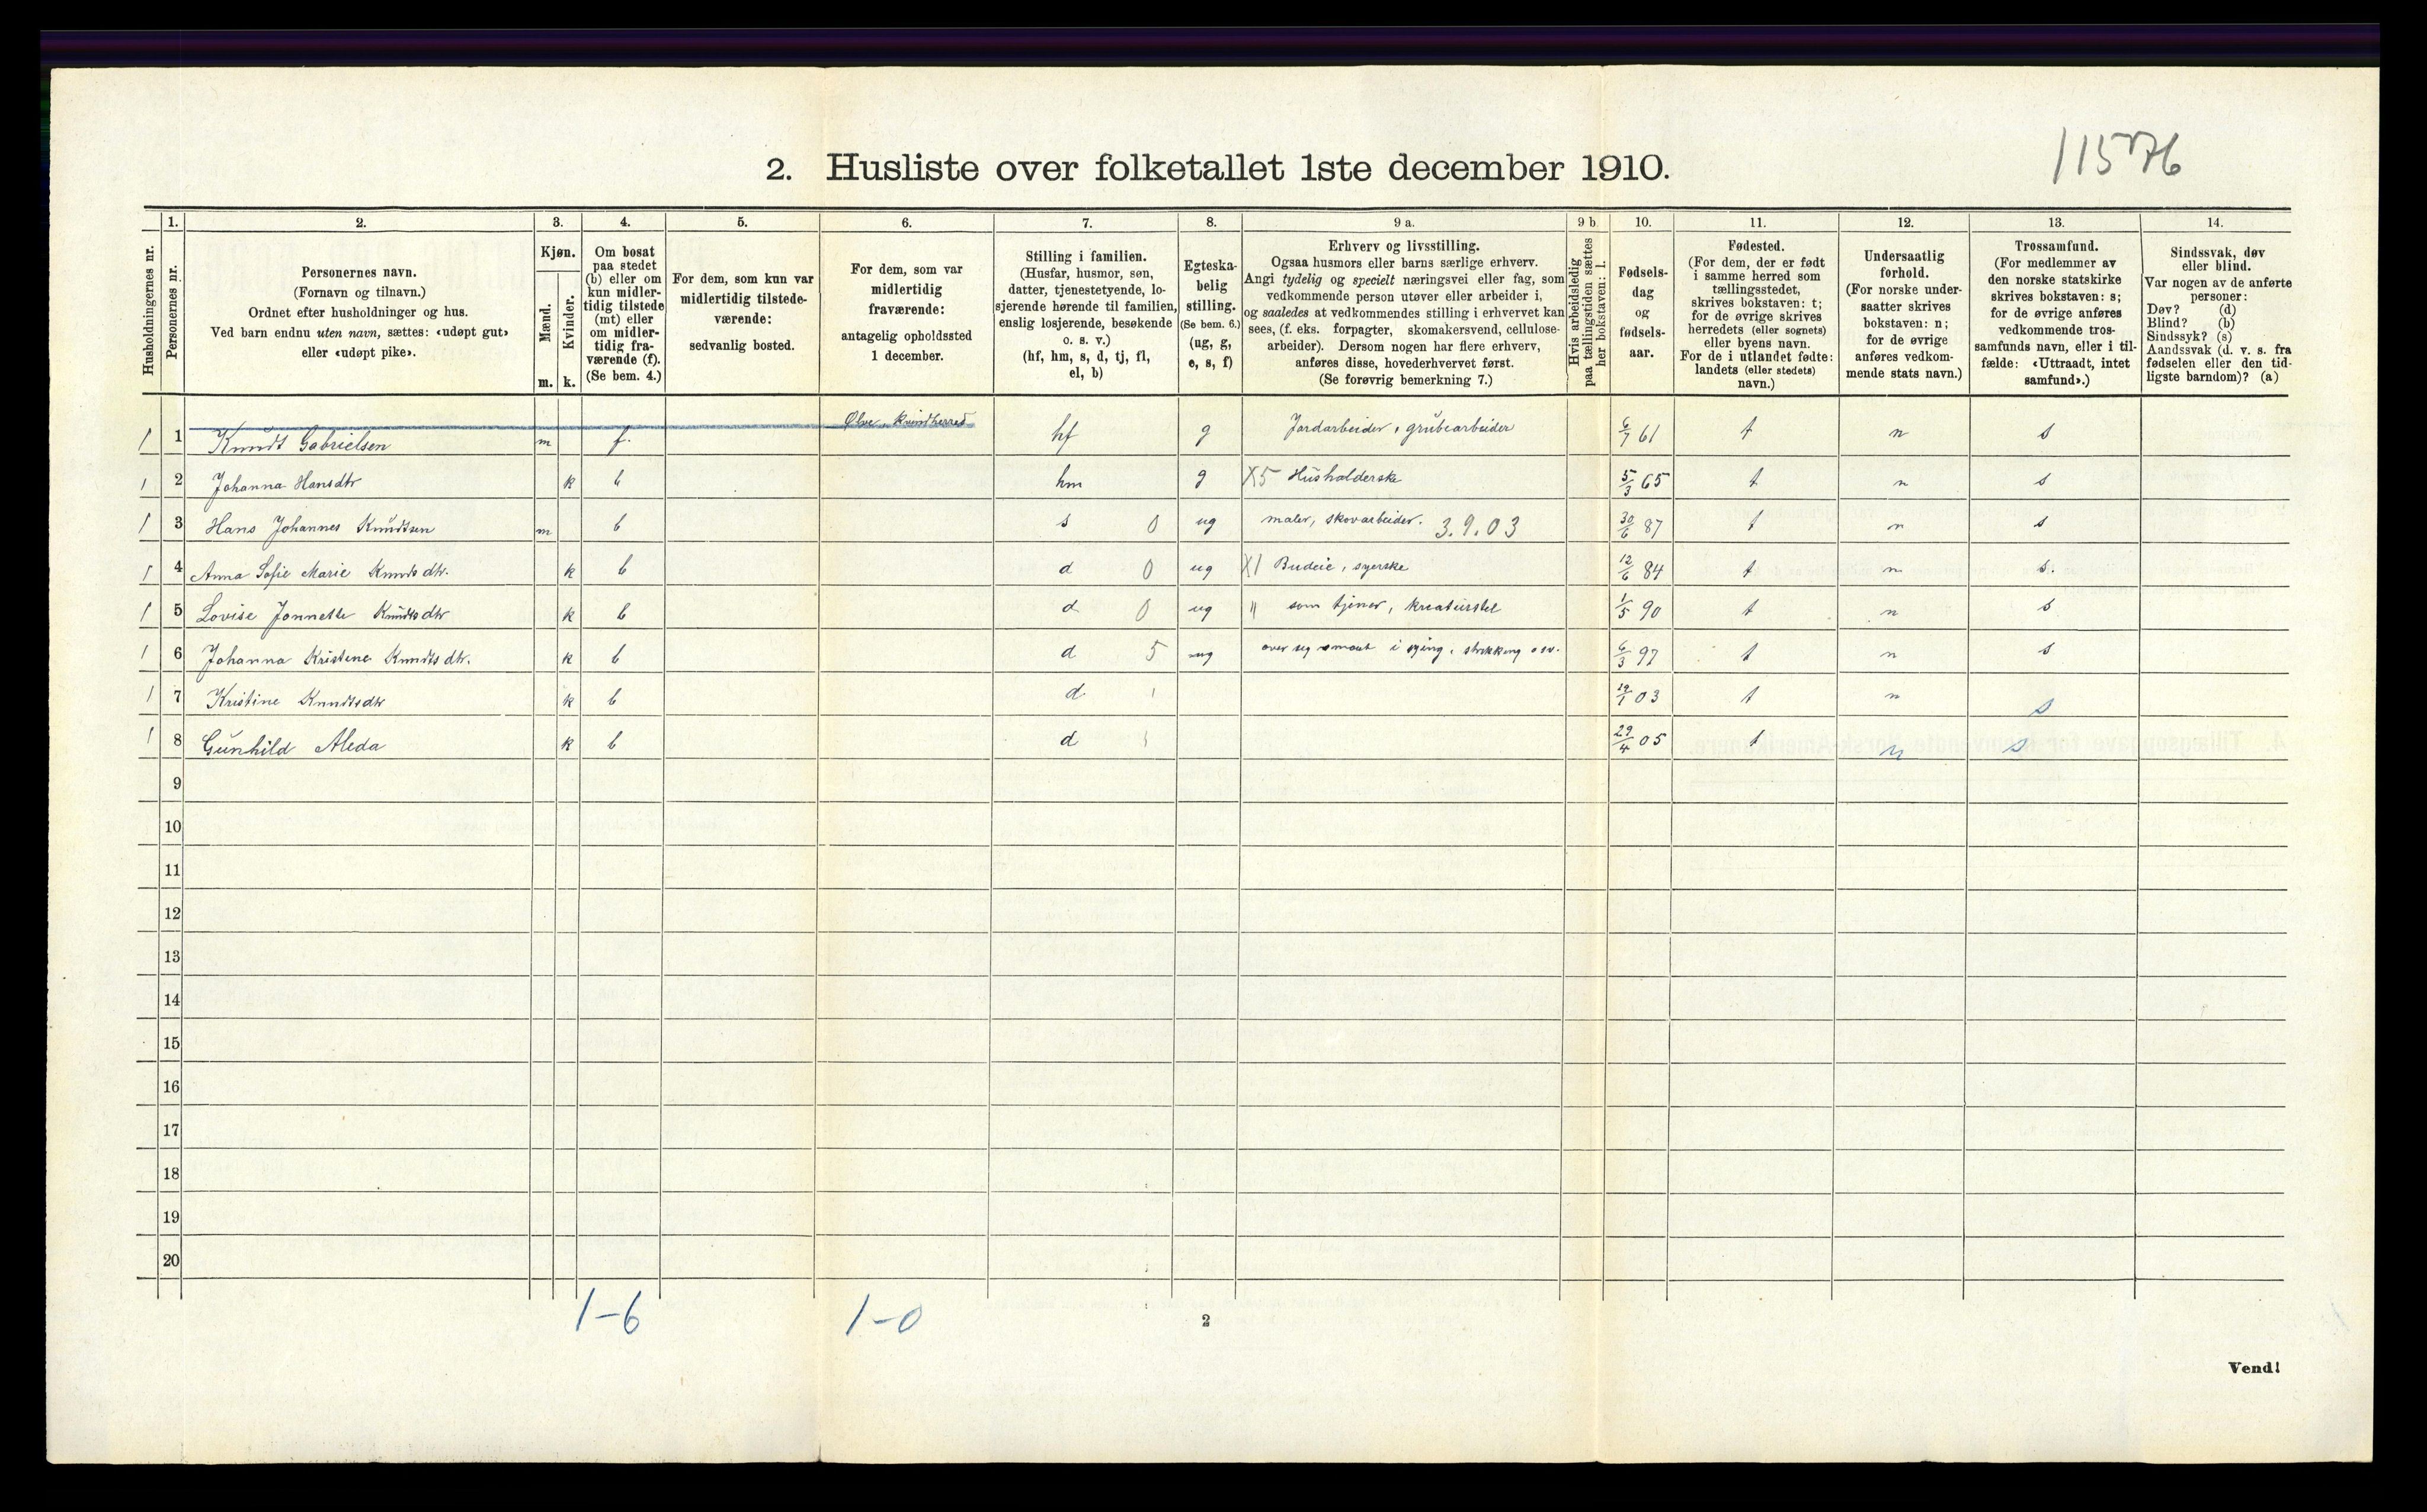 11576
2. Husliste over folketallet 1ste december 1910.
1. 2. 3. 4. 5. 6. 7. 8. 9 a. 9 b. 10. 11. 12. 13. 14.
Husholdningernes nr.
Personernes nr.
Personernes navn.
(Fornavn og tilnavn.)
Ordnet efter husholdninger og hus.
Ved barn endnu uten navn, sættes: «udøpt gut»
eller «udøpt pike».
Kjøn.
Mænd.
Kvinder.
m. k.
Om bosat
paa stedet
(b) eller om
kun midler-
tidig tilstede
(mt) eller
om midler-
tidig fra-
værende (f).
(Se bem. 4.)
For dem, som kun var
midlertidig tilstede-
værende:
sedvanlig bosted.
For dem, som var
midlertidig
fraværende:
antagelig opholdssted
1 december.
Stilling i familien.
(Husfar, husmor, søn,
datter, tjenestetyende, lo-
sjerende hørende til familien,
enslig losjerende, besøkende
o. s. v.)
(hf, hm, s, d, tj, fl,
el, b)
Egteska-
belig
stilling.
(Se bem. 6.)
(ug, g,
e, s, f)
Erhverv og livsstilling.
Ogsaa husmors eller barns særlige erhverv.
Angi tydelig og specielt næringsvei eller fag, som
vedkommende person utøver eller arbeider i,
og saaledes at vedkommendes stilling i erhvervet kan
sees, (f. eks. forpagter, skomakersvend, cellulose-
arbeider). Dersom nogen har flere erhverv,
anføres disse, hovederhvervet først.
(Se forøvrig bemerkning 7.)
Hvis arbeidsledig
paa tællingstiden sættes
her bokstaven: l.
Fødsels-
dag
og
fødsels-
aar.
Fødested.
(For dem, der er født
i samme herred som
tællingsstedet,
skrives bokstaven: t;
for de øvrige skrives
herredets (eller sognets)
eller byens navn.
For de i utlandet fødte:
landets (eller stedets)
navn.)
Undersaatlig
forhold.
(For norske under-
saatter skrives
bokstaven: n;
for de øvrige
anføres vedkom-
mende stats navn.)
Trossamfund.
(For medlemmer av
den norske statskirke
skrives bokstaven: s;
for de øvrige anføres
vedkommende tros-
samfunds navn, eller i til-
fælde: «Uttraadt, intet
samfund».)
Sindssvak, døv
eller blind.
Var nogen av de anførte
personer:
Døv? (d)
Blind? (b)
Sindssyk? (s)
Aandssvak (d. v. s. fra
fødselen eller den tid-
ligste barndom)? (a)
1 1 Knudt Gabrielsen m f. Ølve, Kvindherred hf g Jordarbeider, grubearbeider 6/7 61 t n s
1 2 Johanna Hansdtr k b hm g X5 Husholderske 5/3 65 t n s
1 3 Hans Johannes Knudtsen m b s 0 ug maler, skovarbeider. 3.9.03 30/6 87 t n s
1 4 Anna Sofie Marie Knudtsdtr. k b d 0 ug X1 Budeie, syerske 12/6 84 t n s.
1 5 Lovise Jonnette Knudtsdtr k b d 0 ug " som tjener, kreaturstel 1/5 90 t n s
1 6 Johanna Kristene Knudtsdtr. k b d 5 ug øver seg smaat i sying, strikking osv. 6/3 97 t n s
1 7 Kristine Knudtsdtr k b d 1 19/1 03 t n s
1 8 Gunhild Aleda k b d 1 29/4 05 t n s
9
10
11
12
13
14
15
16
17
18
19
20
1-6 1-0
2
Vend!